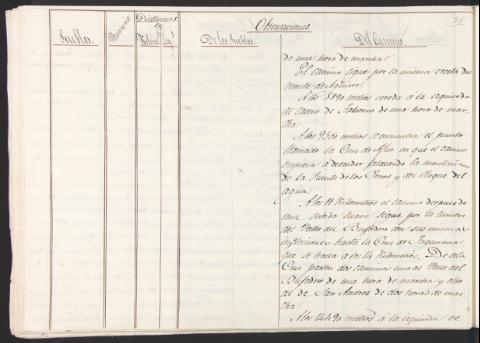 26
Observaciones
Pueblos
Distancias
en
De los Pueblos
Del Camino
de una hora de marcha
El camino sigue por la misma cresta del
monte de Aguirre.
A los 8890 metros queda á la izquierda
el camino de Tahomo de una hora de mar-
cha.
A los 9300 metros se encuentra el punto
llamado la Cruz de Afur en que el camino
empieza a descender faldeando la montaña
de la Fuente de los Perros y del Roque del
agua.
A los 11 Kilometros el camino despues de
una subida suave sigue por la cumbre
del Valle del Bufadero con sus mismas
inflecciones hasta la Cruz de Taganana
que se halla a los 14 Kilometros. De esta
Cruz parten dos caminos uno al Valle del
Bufadero de una hora de marcha y otro
al de San Andres de dos horas de mar-
cha.
A los 14490 metros á la izquierda se